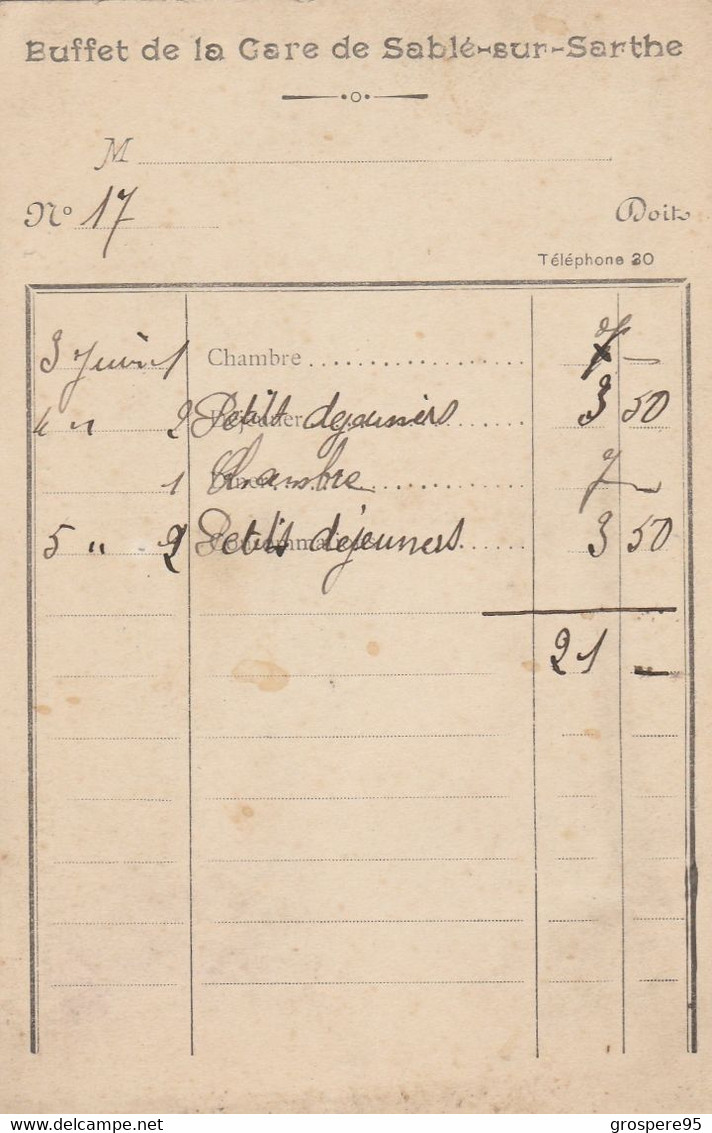 Buffet de la Gare de Sablé-sur-Sarthe
M
N° 17 Doit
Téléphone 20
3 Juin 1 Chambre 7 —
4 " 2 Petits dejeuners 3 50
1 Chambre 7 —
5 " 2 Petits déjeuners 3 50
21 —
delcampe.net
grospere95